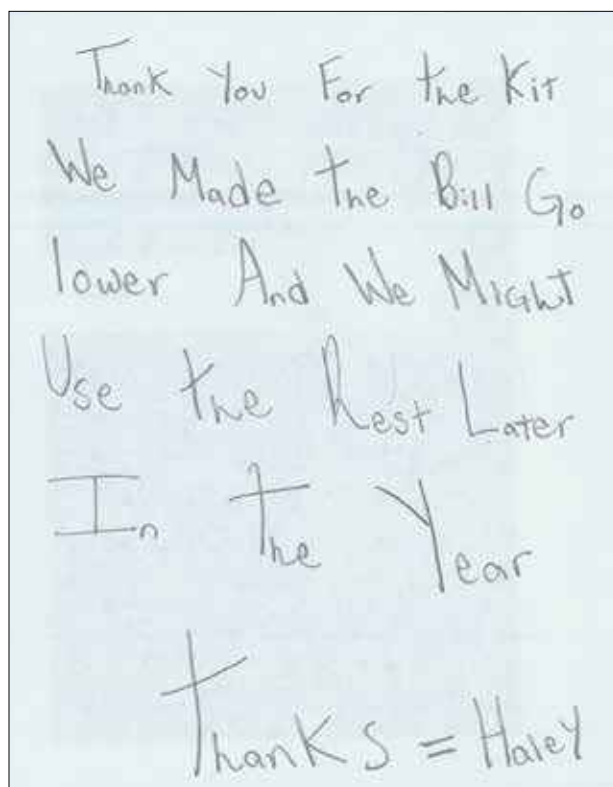 Thank You For the Kit
We Made the Bill Go
lower And We Might
Use the Rest Later
In the Year
Thanks = Haley